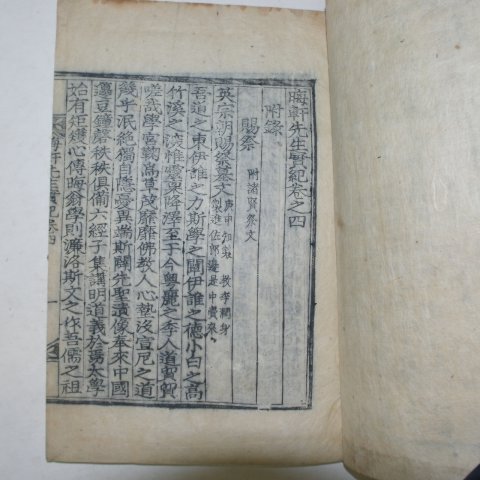 晦軒先生實紀卷之四
附錄
賜祭 附諸賢祭文
英宗朝賜祭墓文 庚申知製教李周身
製進佐郎邊是中賫來
吾道之東伊誰之力斯學之闢伊誰之德小白之高
竹溪之淡惟嶽東降澤至于今粤麗之季人道貿貿
嗟哉學宮鞠爲草茂靡靡佛教人心墊沒宣尼之道
幾乎泯絶獨自隱憂異端斯闢先聖遺像奉來中國
籩豆鐘磬秩秩俱備六經子集講明道義於焉太學
始有矩矱心傳晦翁學則濂洛斯文之作吾儒之祖
晦軒先生實紀卷四
一